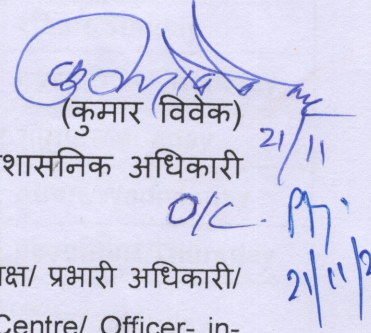 (कुमार विवेक)
21/11
शासनिक अधिकारी
O/C.
21/11/2
क्ष/ प्रभारी अधिकारी/
Centre/ Officer- in-